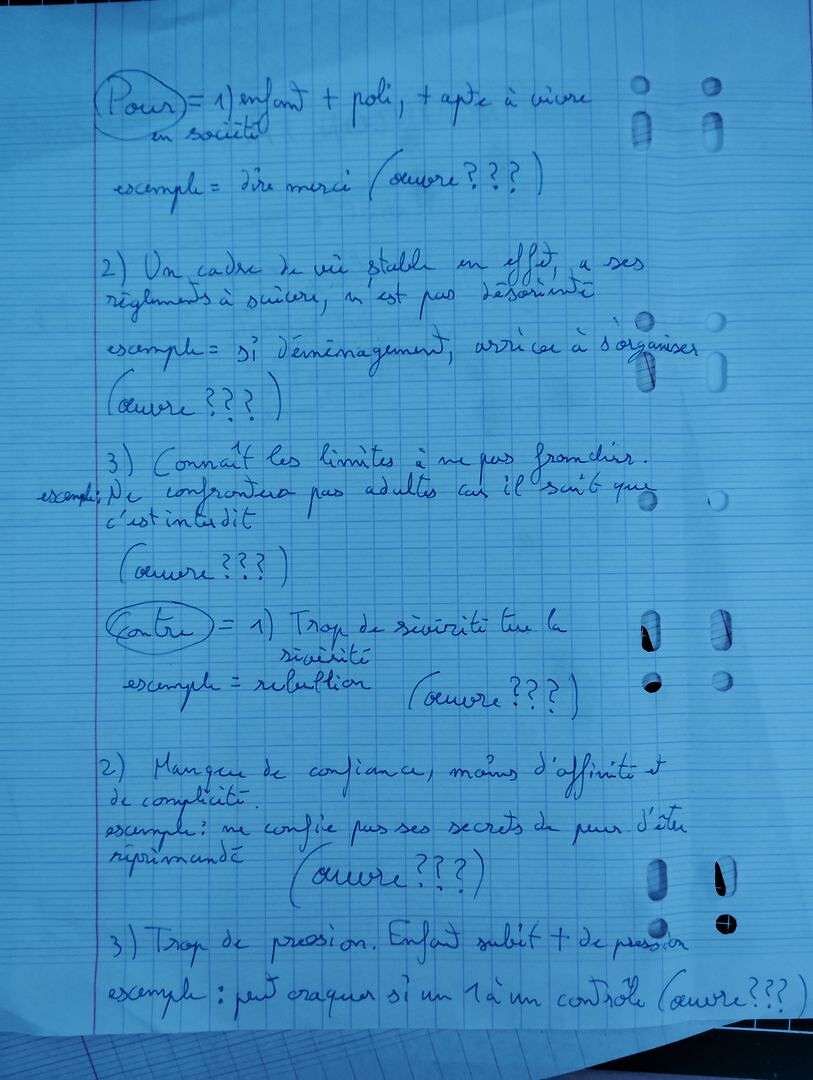 Pour = 1) enfant + poli, + apte à vivre
en société
exemple = dire merci (œuvre ???)
2) Un cadre de vie stable en effet, a ses
règlements à suivre, n'est pas désorienté
exemple = si déménagement, arrive à s'organiser
(œuvre ???)
3) Connaît les limites à ne pas franchir.
exemple: Ne confrontera pas adultes car il sait que
c'est interdit
(œuvre ???)
Contre = 1) Trop de sévérité tue la
sévérité
exemple = rebellion (œuvre ???)
2) Manque de confiance, moins d'affinité et
de complicité.
exemple: ne confie pas ses secrets de peur d'être
réprimandé
(œuvre ???)
3) Trop de pression. Enfant subit + de pression
exemple : peut craquer si un 1 à un contrôle (œuvre ???)